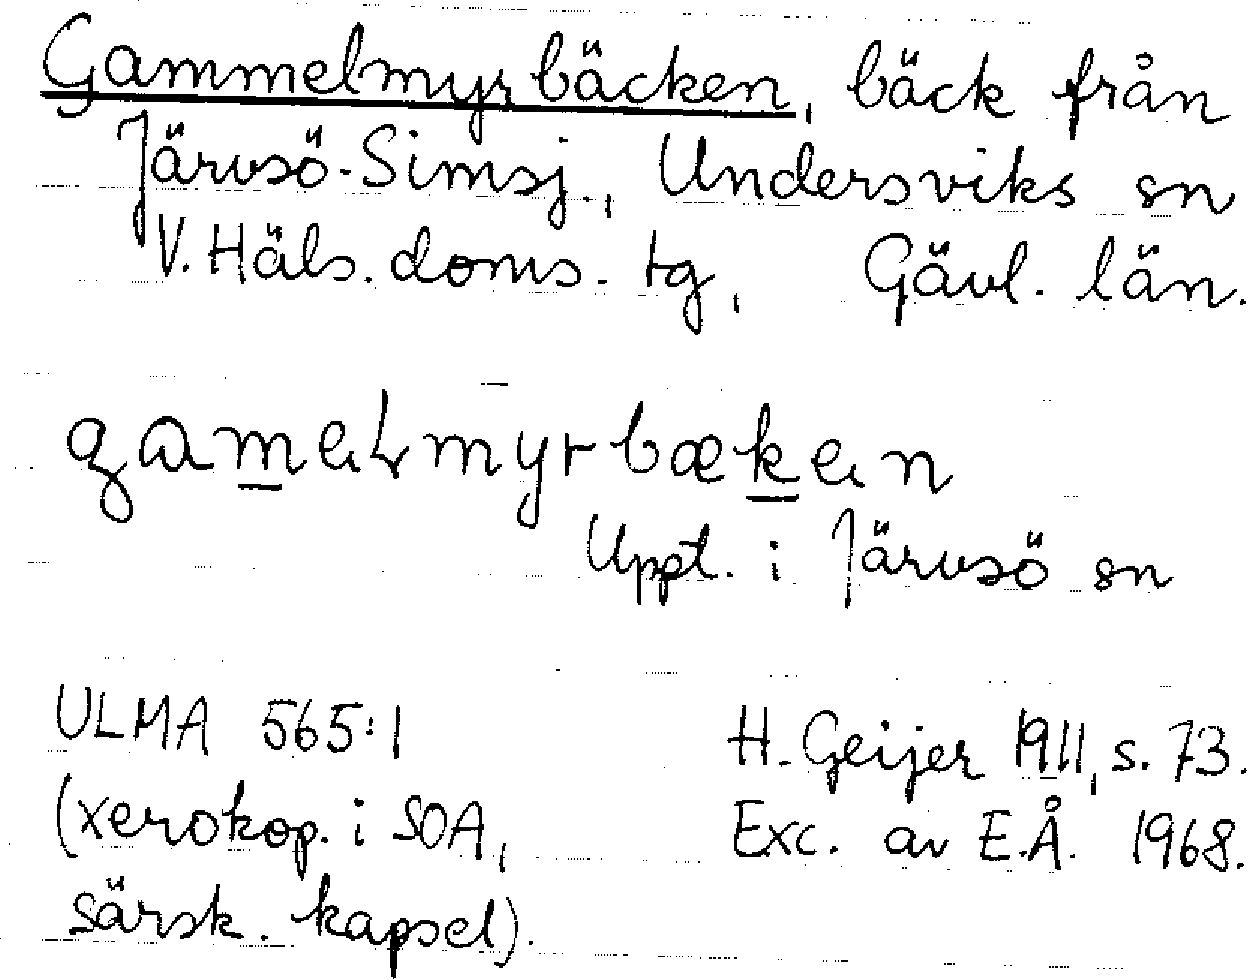 Gammelmyrbäcken, bäck från
Järvsö-Simsj., Undersviks sn
V. Häls. doms. tg, Gävl. län.
gamelmyrbæken
Uppt. i Järvsö sn
ULMA 565:1 H. Geijer 1911, s. 73.
(xerokop. i SOA, Exc. av E.Å. 1968.
särsk. kapsel).